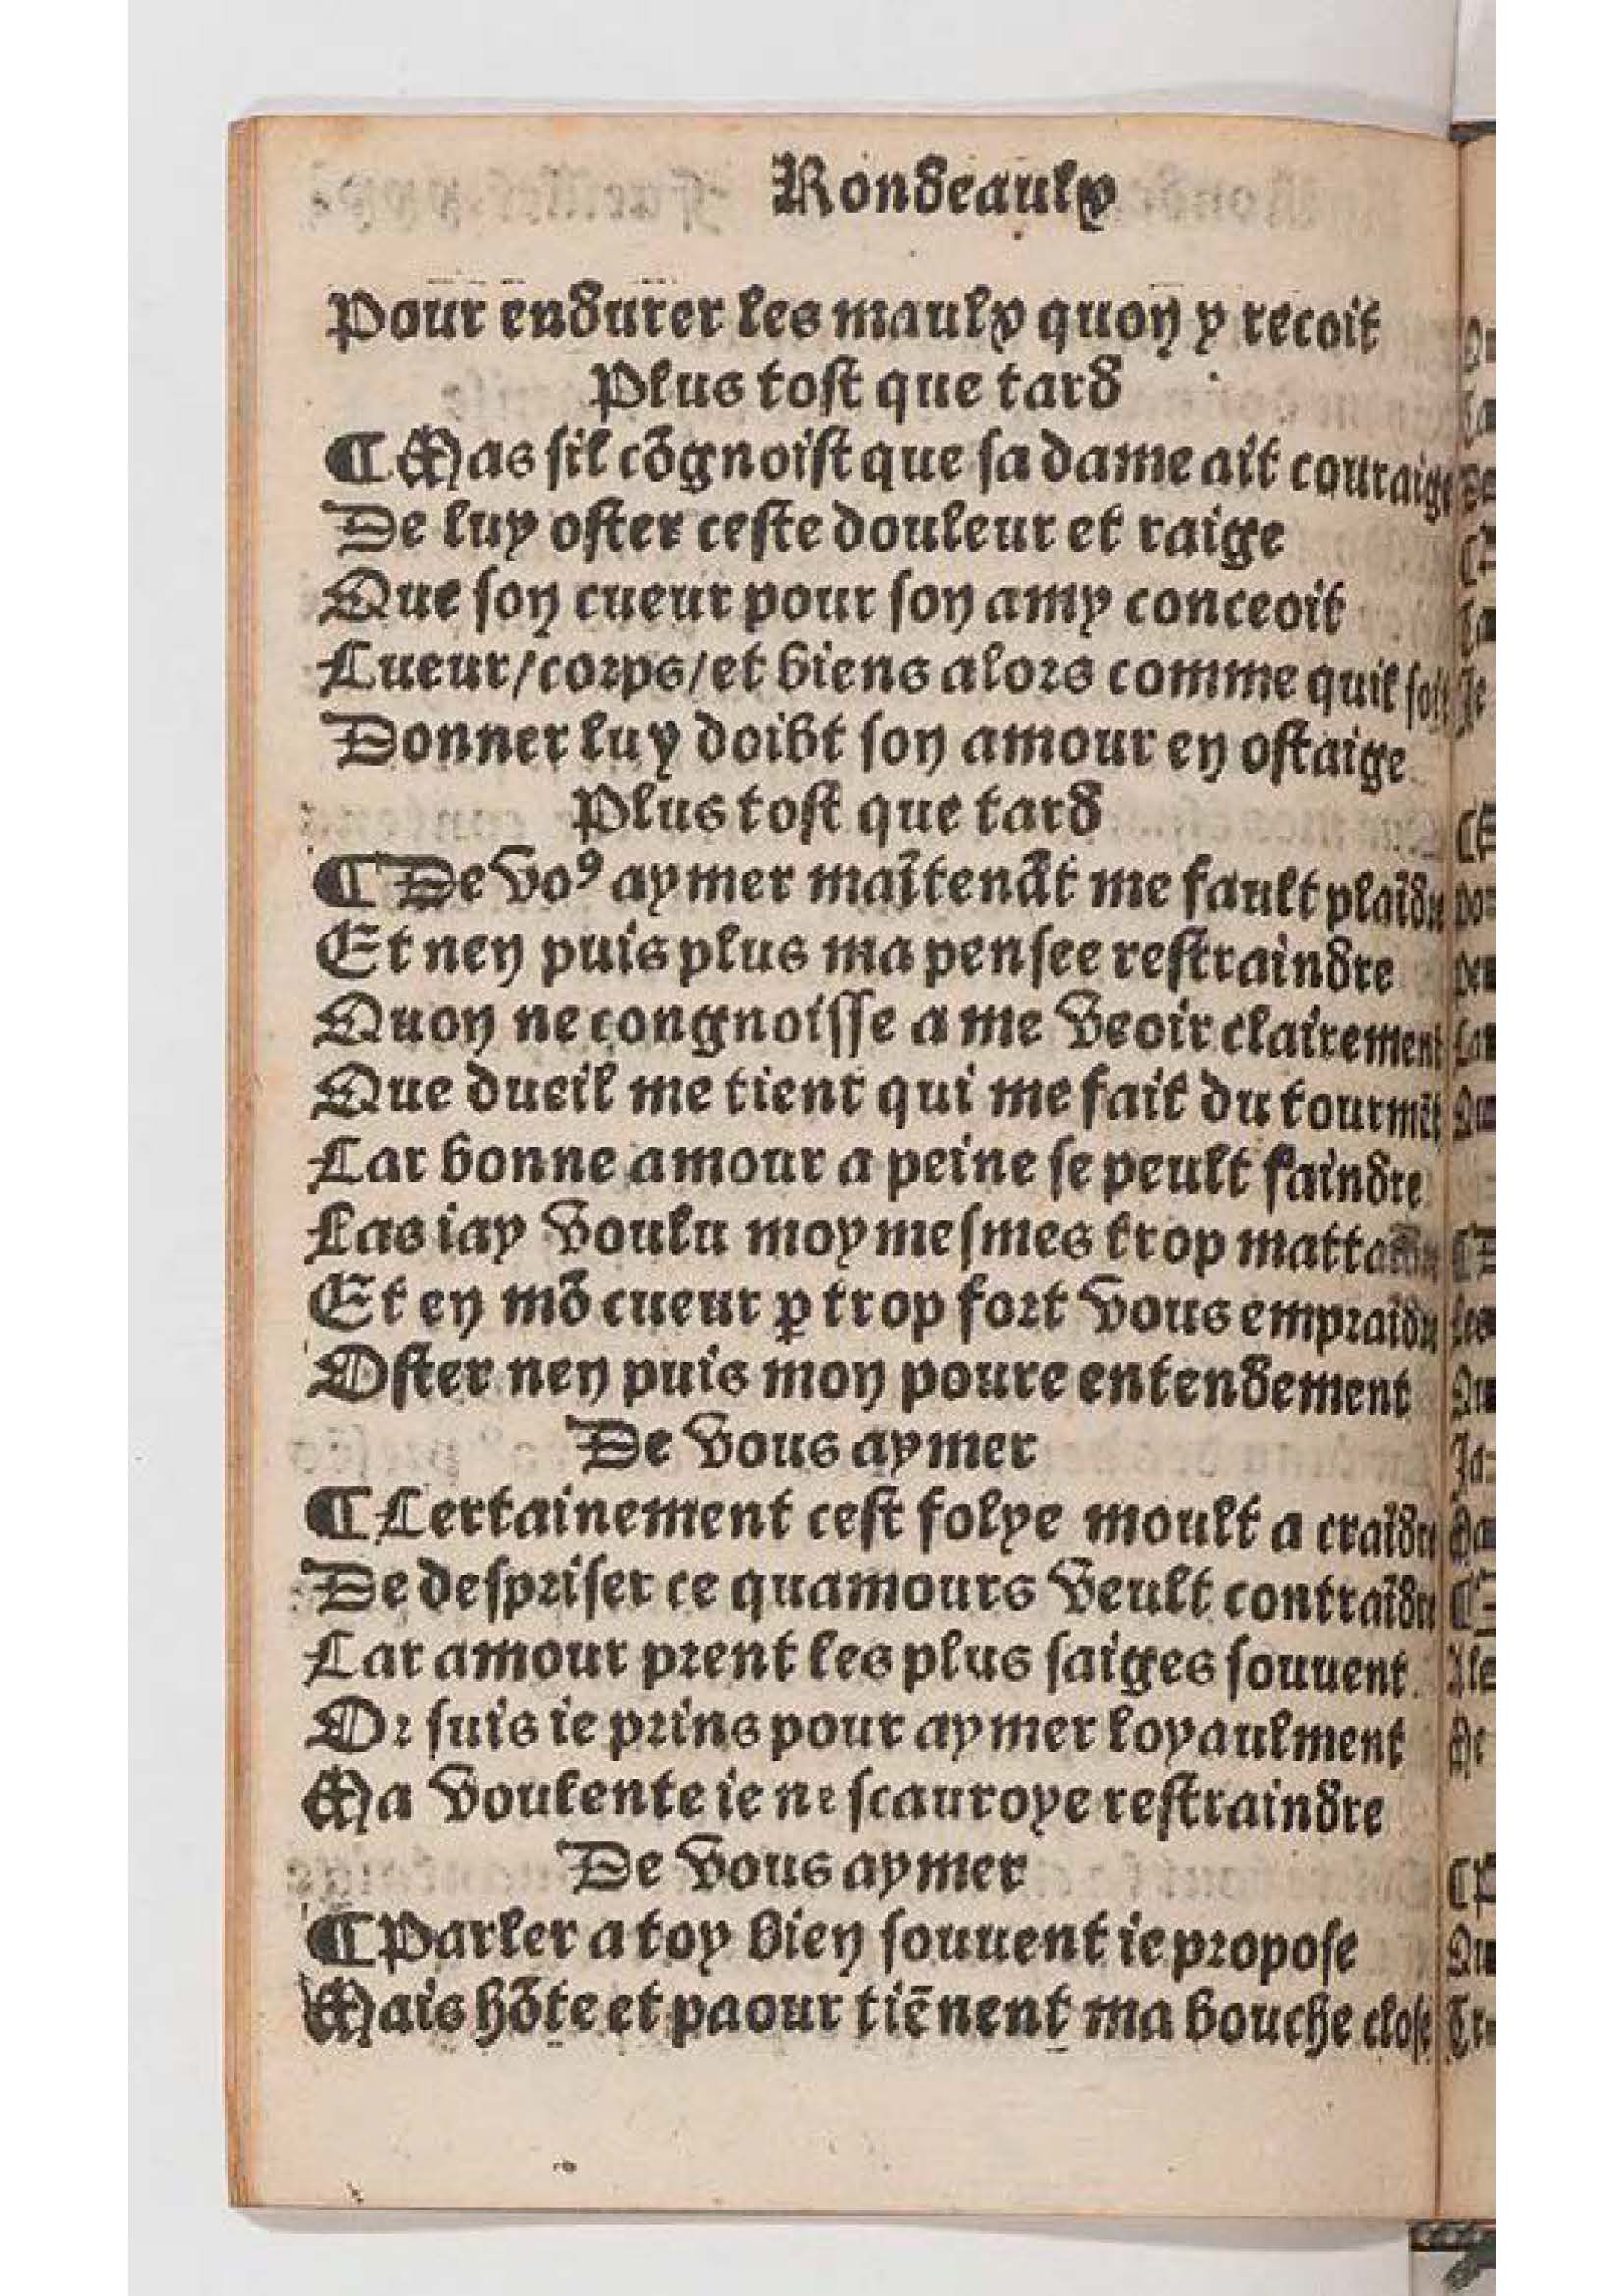 Rondeaulx
Pour endurer les maulx quon y recoit
Plus tost que tard
¶ Mas sil cōgnoist que sa dame ait couraige
De luy oster ceste douleur et raige
Que son cueur pour son amy conceoit
Cueur/corps/et biens alors comme quil soit
Donner luy doibt son amour en ostaige
Plus tost que tard
¶ De voꝰ aymer maītenāt me fault plaīdre
Et nen puis plus ma pensee restraindre
Quon ne congnoisse a me veoir clairement
Que dueil me tient qui me fait du tourmēt
Car bonne amour a peine se peult faindre
Las iay voulu moymesmes trop
Et en mō cueur ꝑ trop fort vous empraīdre
Oster nen puis mon poure entendement
De vous aymer
¶ Certainement cest folye moult a craīdre
De despriser ce quamours veult contraīdre
Car amour prent les plus saiges souuent
Or suis ie prins pour aymer loyaulment
Ma voulente ie ne scauroye restraindre
De vous aymer
¶ Parler a toy bien souuent ie propose
Mais hōte et paour tiēnent ma bouche close